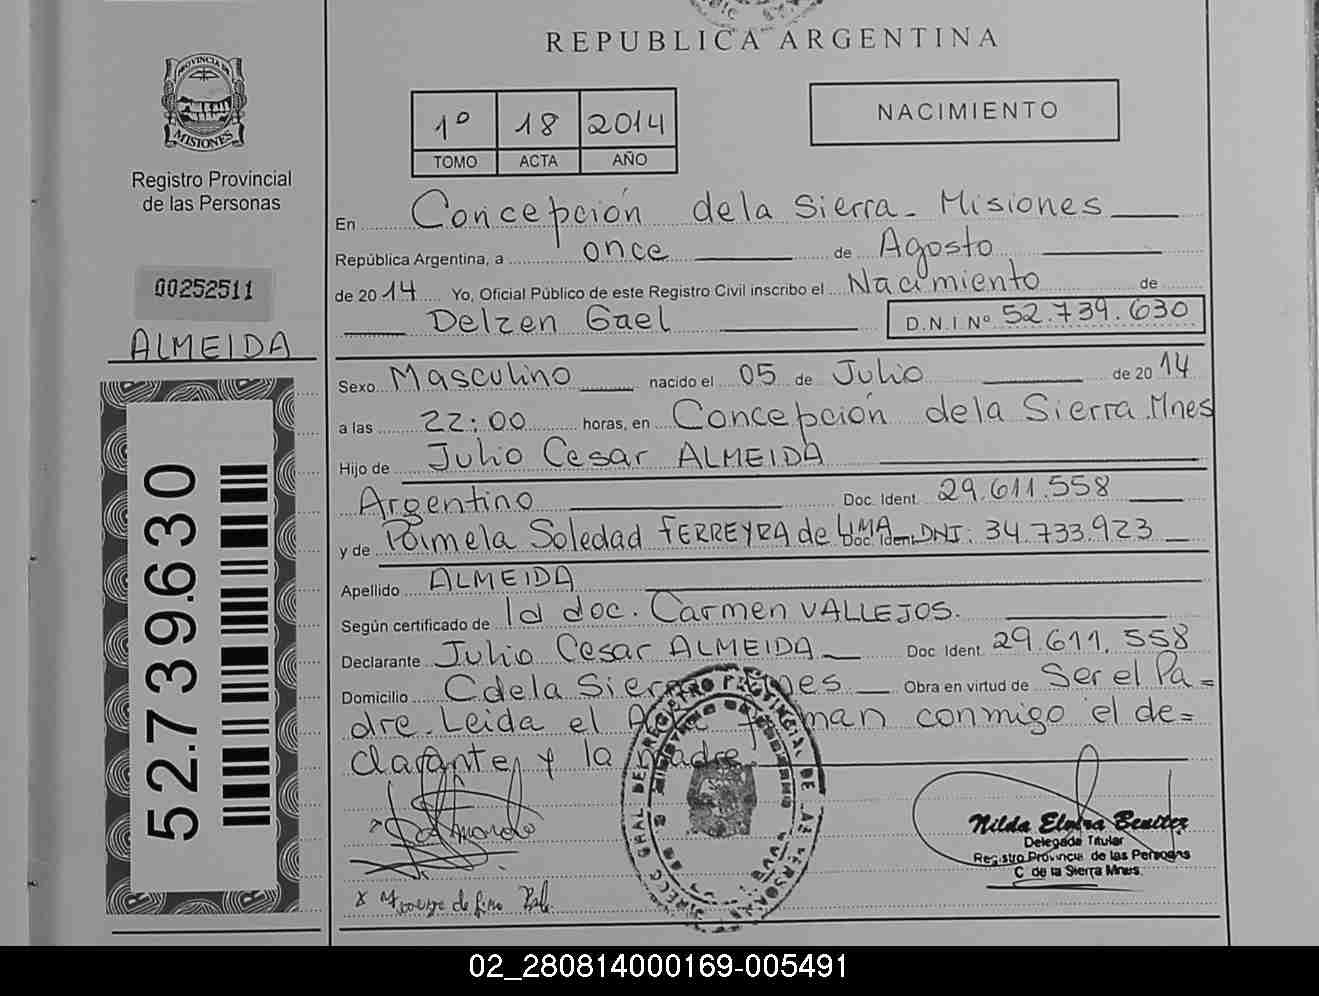 REPUBLICA ARGENTINA
PROVINCIA DE
MISIONES
Registro Provincial
de las Personas
00252511
ALMEIDA
52.739.630
1º 18 2014
TOMO ACTA AÑO
NACIMIENTO
En Concepción dela Sierra - Misiones
República Argentina, a once de Agosto
de 2014 Yo, Oficial Público de este Registro Civil inscribo el Nacimiento de
Delzen Gael D.N.I Nº 52.739.630
Sexo Masculino nacido el 05 de Julio de 2014
a las 22:00 horas, en Concepción dela Sierra Mnes
Hijo de Julio Cesar ALMEIDA
Argentino Doc. Ident. 29.611.558
y de Pamela Soledad FERREYRA de LIMA Doc. Ident. DNI: 34.733.923
Apellido ALMEIDA
Según certificado de la doc. Carmen VALLEJOS.
Declarante Julio Cesar ALMEIDA Doc Ident. 29.611.558
Domicilio C dela Sierra Mnes Obra en virtud de Ser el Pa=
dre. Leida el firman conmigo el de=
clarante y la madre.
DIRECC GRAL DE REGISTRO PROVINCIAL DE LAS PERSONAS
MINISTERIO DE GOBIERNO
Nilda Elvira Benitez
Delegada Titular
Registro Provincial de las Personas
C de la Sierra Mnes
02_280814000169-005491